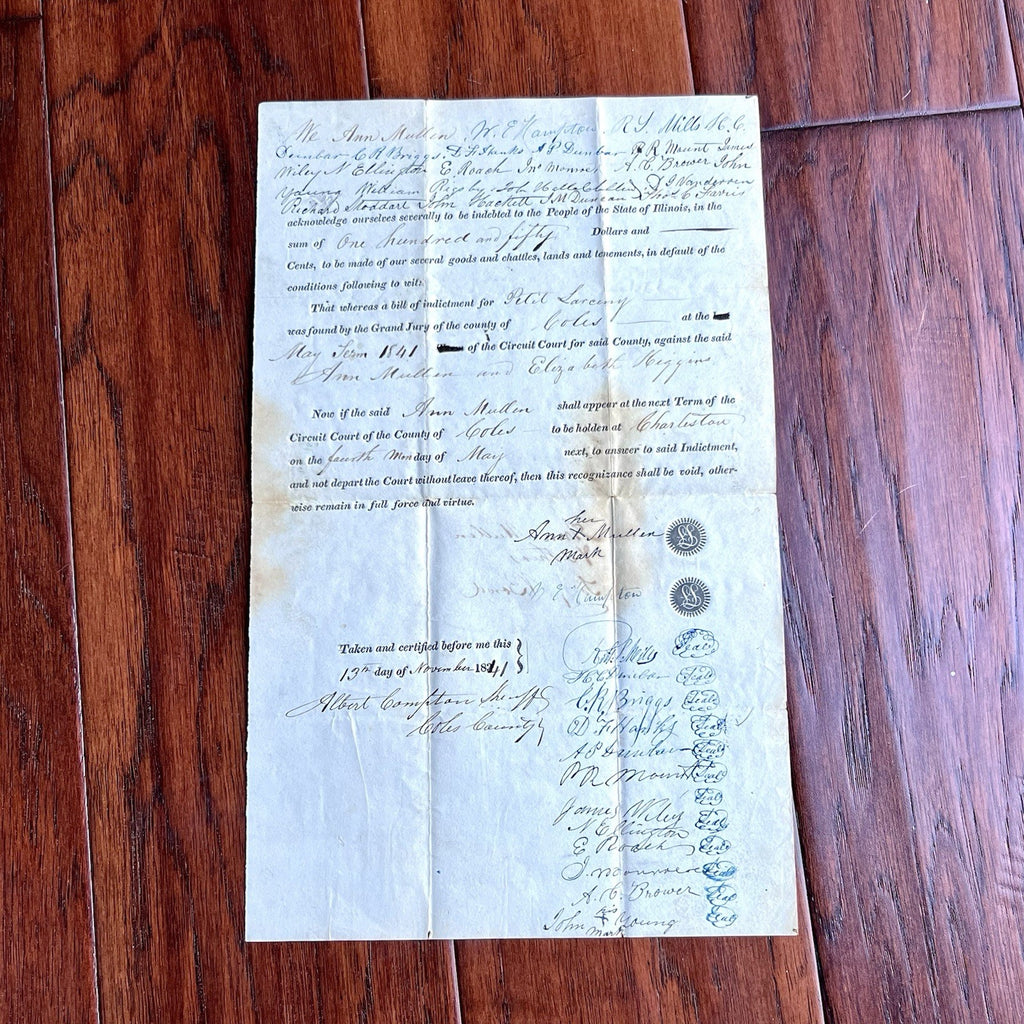 We Ann Mullen, W. E Hampton, R S. Mills H. C.
Dunbar C R Briggs. D F Hanks A P Dunbar R R Mount James
Wiley N Ellington E Roach Jno Monroe A. C. Brewer John
Young William Rigsby John D J Vanderren
Richard Stoddart John Hackett S M Duncan Thos C Farris
acknowledge ourselves severally to be indebted to the People of the State of Illinois, in the
sum of One hundred and fifty Dollars and
Cents, to be made of our several goods and chattles, lands and tenements, in default of the
conditions following to wit:
That whereas a bill of indictment for Petit Larceny
was found by the Grand Jury of the county of Coles at the
May Term 1841 of the Circuit Court for said County, against the said
Ann Mullen and Elizabeth Higgins
Now if the said Ann Mullen shall appear at the next Term of the
Circuit Court of the County of Coles to be holden at Charleston
on the fourth Monday of May next, to answer to said Indictment,
and not depart the Court without leave thereof, then this recognizance shall be void, other-
wise remain in full force and virtue.
her
Ann X Mullen
mark
E Hampton
Taken and certified before me this
13th day of November 1841
Albert Compton Sheriff
Coles County
R S Mills Seal
H C Dunbar Seal
C. R. Briggs Seal
D F Hanks Seal
A P Dunbar Seal
R R Mount Seal
Seal
James Wiley Seal
N Ellington
E Roach Seal
J. Monroe Seal
A. C. Brower Seal
his
John X Young Seal
mark